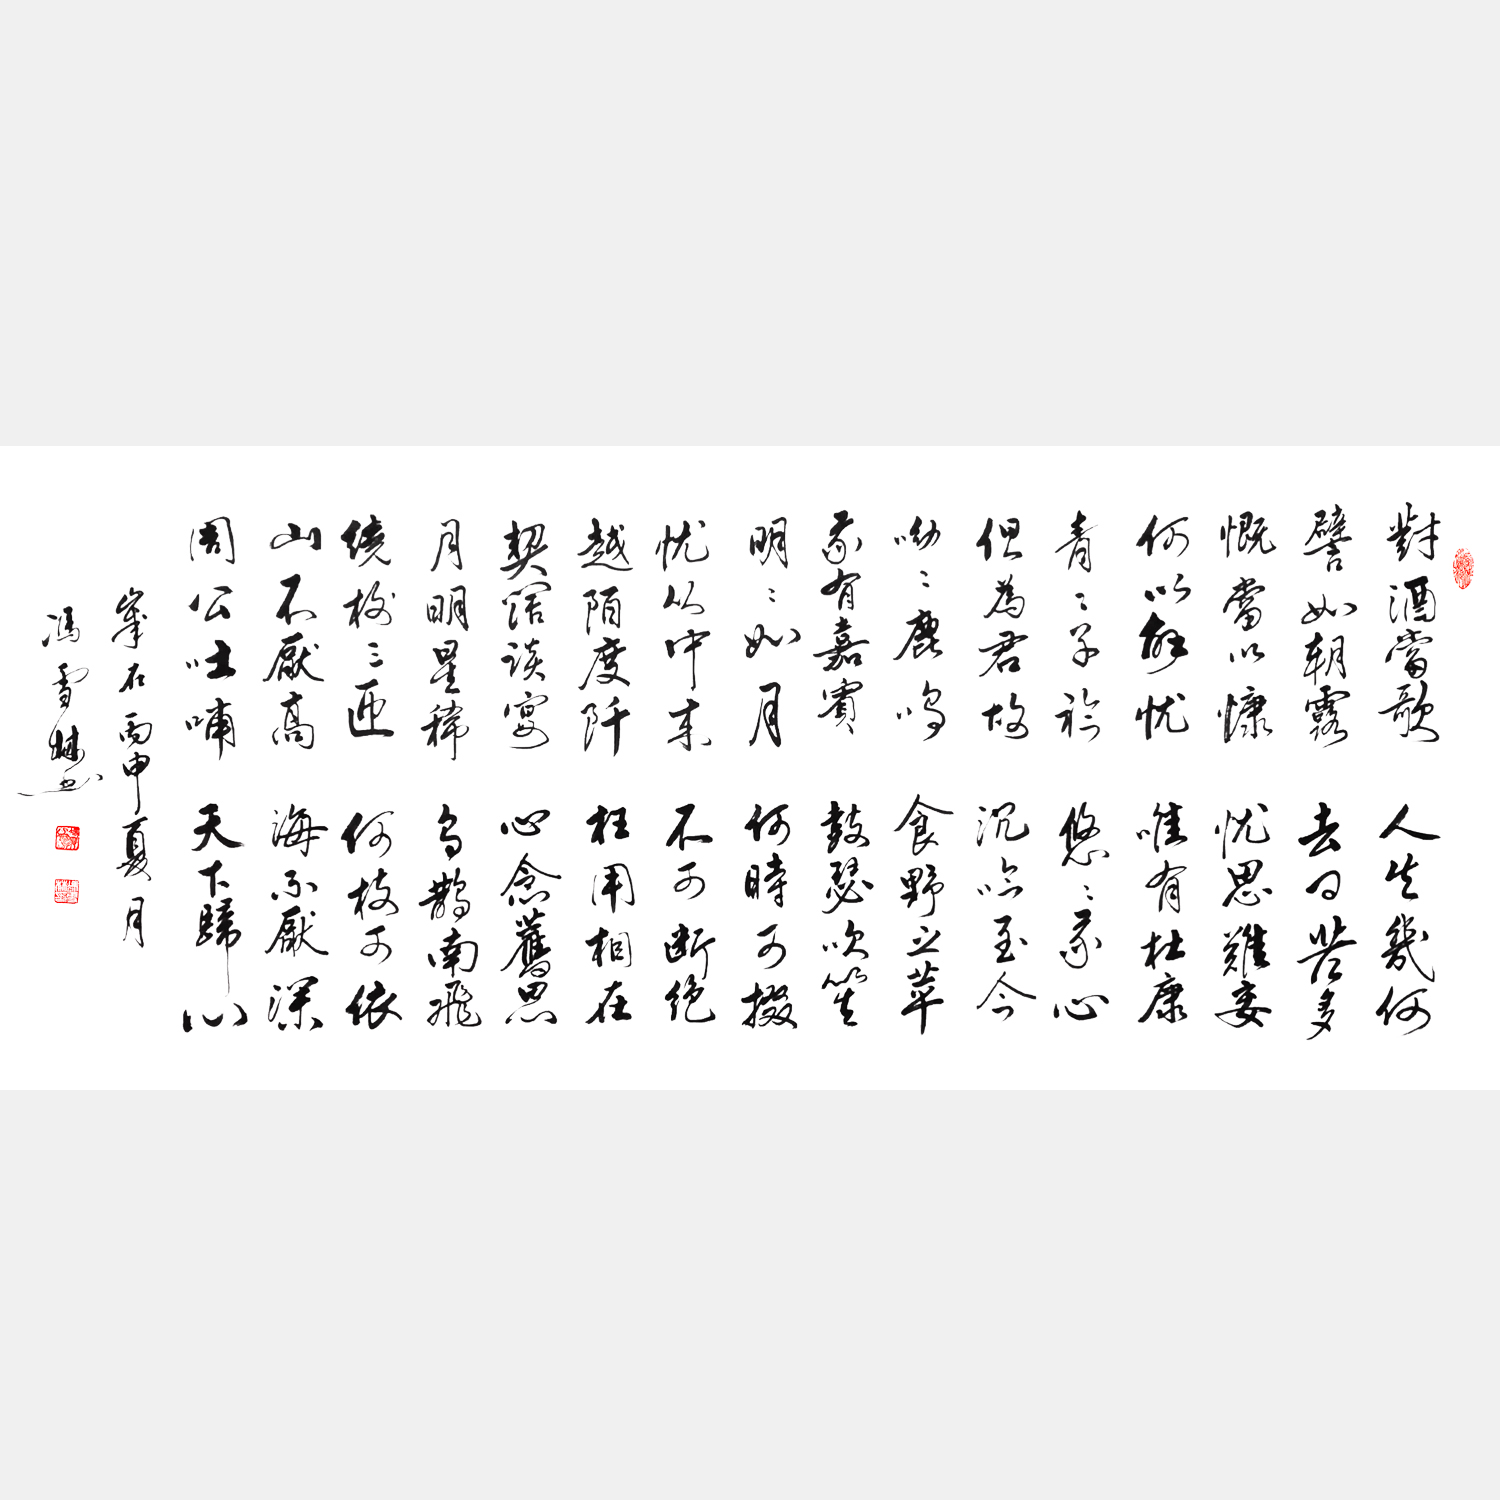 對酒當歌 人生幾何
譬如朝露 去日苦多
慨當以慷 忧思難忘
何以解忧 唯有杜康
青〻子衿 悠〻我心
但為君故 沉吟至今
呦〻鹿鳴 食野之苹
我有嘉賓 鼓瑟吹笙
明〻如月 何時可掇
忧从中来 不可断绝
越陌度阡 枉用相存
契阔談宴 心念舊恩
月明星稀 烏鵲南飛
繞樹三匝 何枝可依
山不厭高 海不厭深
周公吐哺 天下歸心
歲在丙申夏月
馮雪书